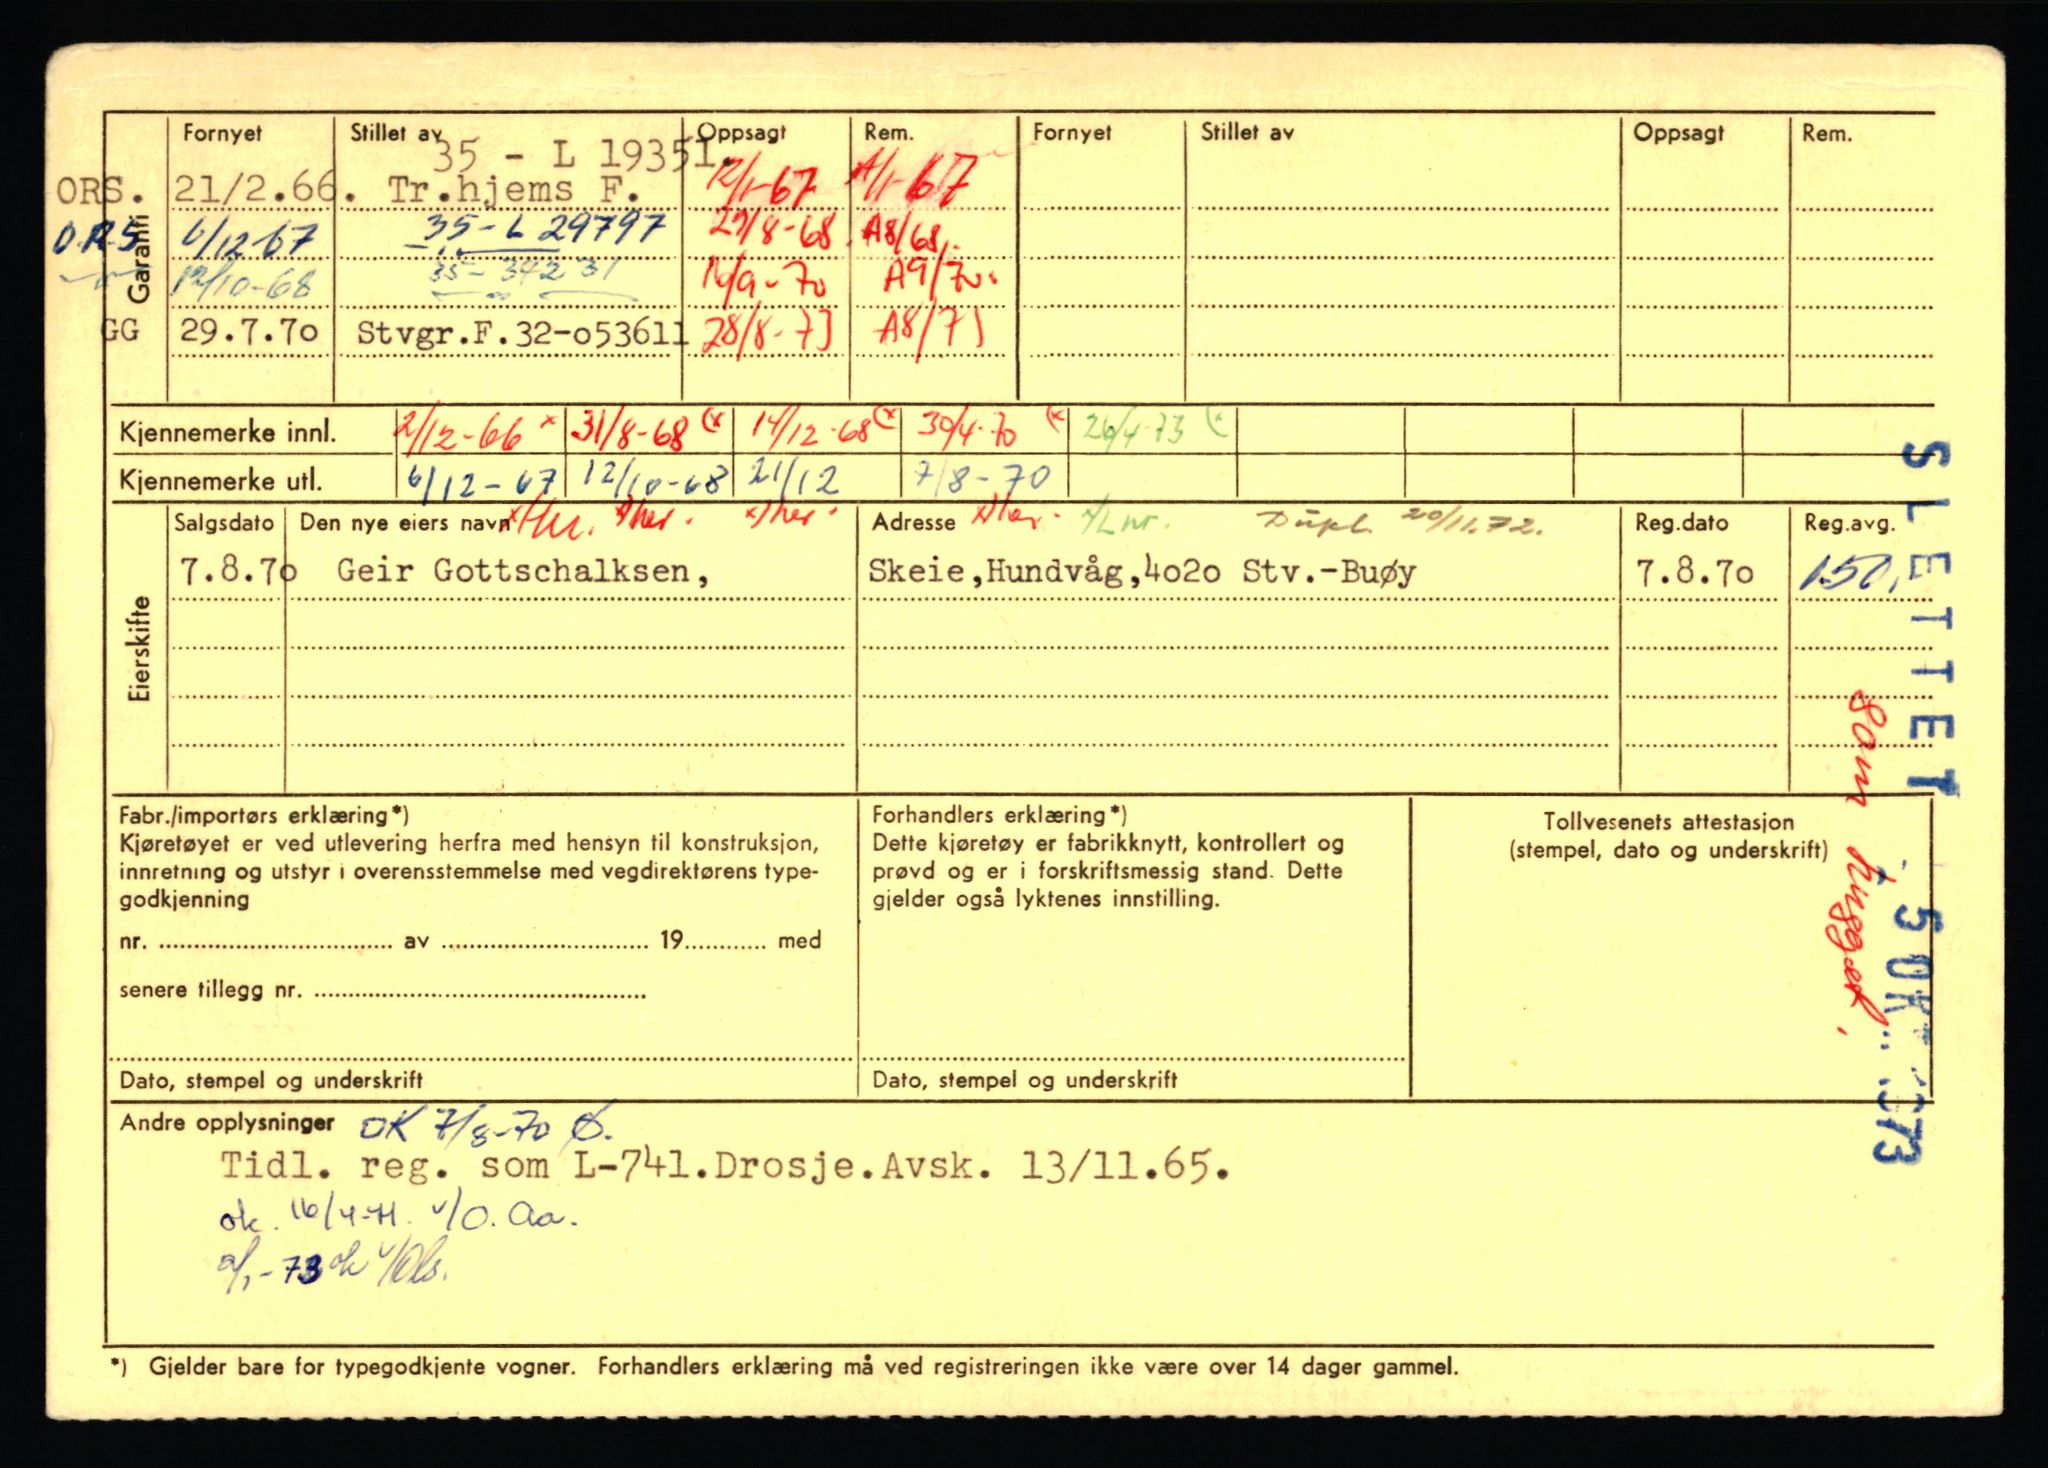 Fornyet Stillet av Oppsagt Rem. Fornyet Stillet av Oppsagt Rem.
35 - L 19351.
ORS. 21/2.66. Tr.hjems F. 12/1-67 A/1-67
O.R.S 6/12-67 35-L 29797 29/8-68 A8/68
Garanti
12/10-68 35-34231 16/9-70 A9/70.
GG 29.7.7o Stvgr.F.32-o53611 28/8-73 A8/73
Kjennemerke innl. 2/12-66 x 31/8-68 (x 14/12-68 (x 30/4-70 (x 26/4-73 (x
Kjennemerke utl. 6/12-67 12/10-68 21/12 7/8-70
Salgsdato Den nye eiers navn Adresse Dupl. 20/11.72. Reg.dato Reg.avg.
7.8.7o Geir Gottschalksen, Skeie,Hundvåg,4o2o Stv.-Buøy 7.8.7o 150,
Eierskifte
SLETTET
Som hugget.
5 OKT. 1973
Fabr./importørs erklæring*)
Kjøretøyet er ved utlevering herfra med hensyn til konstruksjon,
innretning og utstyr i overensstemmelse med vegdirektørens type-
godkjenning
nr. av 19 med
senere tillegg nr.
Dato, stempel og underskrift
Forhandlers erklæring*)
Dette kjøretøy er fabrikknytt, kontrollert og
prøvd og er i forskriftsmessig stand. Dette
gjelder også lyktenes innstilling.
Dato, stempel og underskrift
Tollvesenets attestasjon
(stempel, dato og underskrift)
Andre opplysninger OK 7/8-70 Ø.
Tidl. reg. som L-741.Drosje.Avsk. 13/11.65.
ok. 16/4-71. v/O. Aa.
-73 ok v/Ols.
*) Gjelder bare for typegodkjente vogner. Forhandlers erklæring må ved registreringen ikke være over 14 dager gammel.